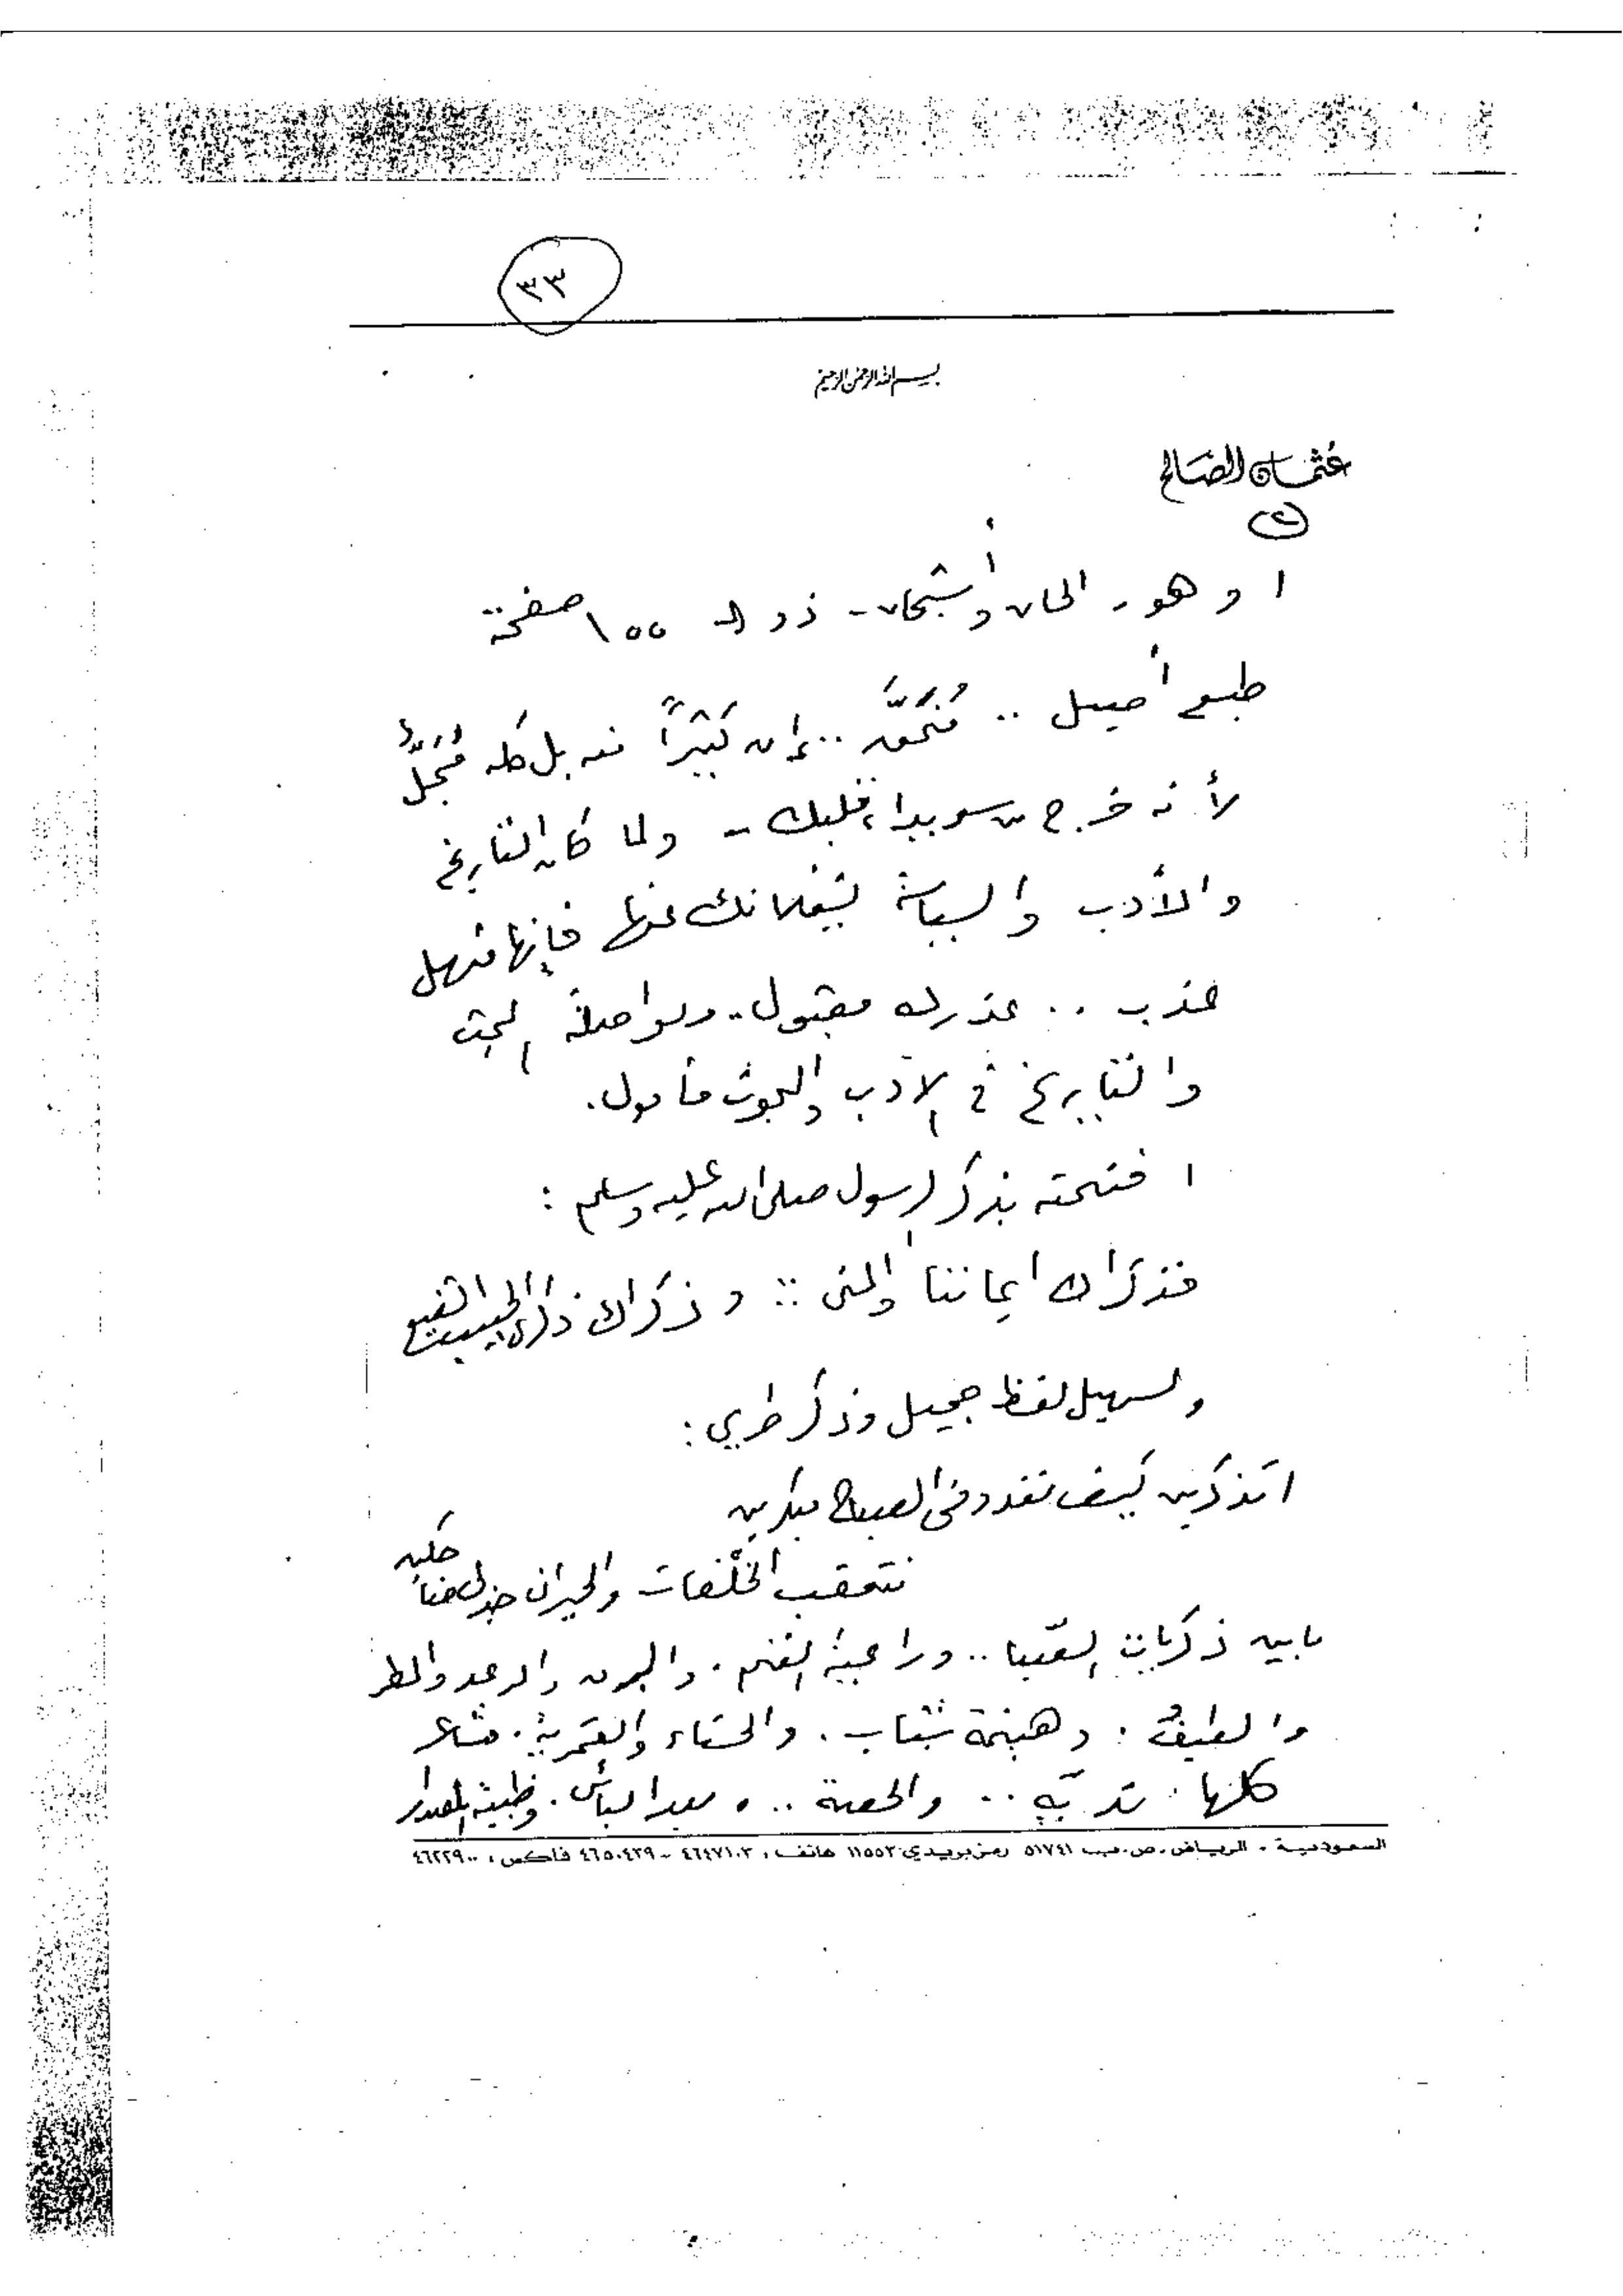 ٣٣
بسم الله الرحمن الرحيم
عثمان الصالح
٢
ا وهو - الحان وأشجان - ذو الـ ١٥٥ صفحة
طبع أصيل .. مُنَمَّق .. إن كثيرًا منه بل كله مُبَجَّلٌ
لأنه خرج من سويداء قلبك - ولما كان التاريخ
والأدب والسياسة يشغلانك عنها فإنها منهل
عذب .. عذرك مقبول .. ومواصلة البحث
والتاريخ في الأدب والبحوث مأمول .
افتتحته بذكر الرسول صلى الله عليه وسلم :
فذكراك ايماننا والمنى :: وذكراك ذكرى الحبيب الشفيع
ولسهيل لفظ جميل وذكر طري :
اتذكرين كيف نغدو في الصباح مبكرين
نتعقب الخلفات والجيران
مابين ذكريات الصبا .. وراعية الغنم . والبرق والرعد والمطر
والطيف . وهينمة شباب . والحسناء والقمرية . مشاعر
كلها .. والحصة ..
السعودية - الرياض - ص.ب ٥١٧٤١ رمز بريدي: ١١٥٥٣ هاتف: ٤٦٤٧١٠٣ - ٤٦٥٠٤٣٩ فاكس: ٤٦٢٢٩٠٠